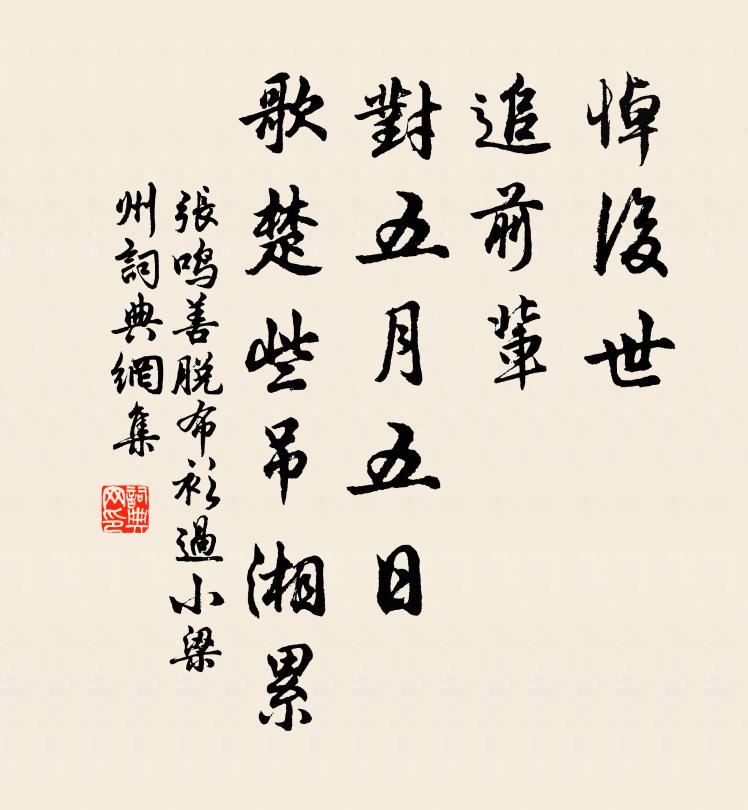 悼後世
追前輩
對五月五日
歌楚些吊湘累
張鳴善脫布衫過小梁
州詞典網集
詞典
网印